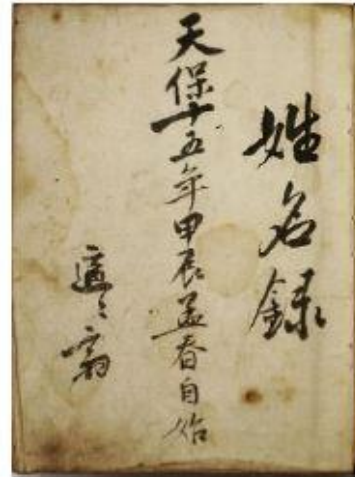 姓名録
天保十五年甲辰孟春自始
適々